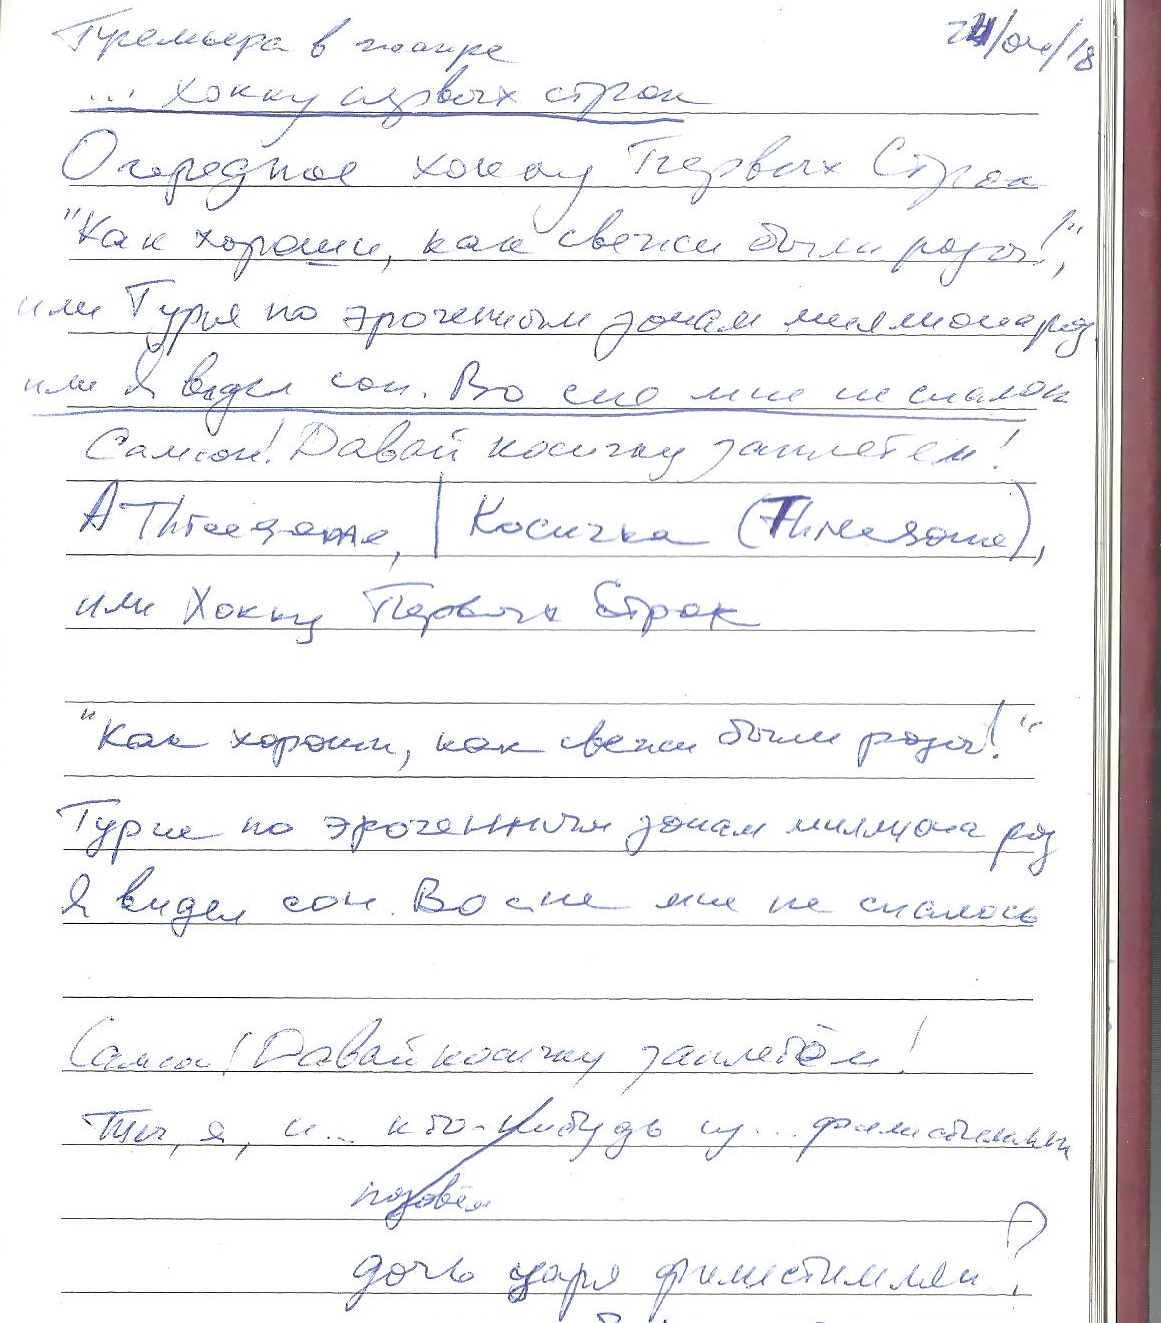 Премьера в жанре 24/04/18
... хокку первых строк
Очередное хокку Первых Строк
"Как хороши, как свежи были розы!",
или Турне по эрогенным зонам миллиона роз,
или Я видел сон. Во сне мне не спалось
Самсон! Давай косичку заплетём!
A Threesome, | Косичка (Threesome),
или Хокку Первых Строк
"Как хороши, как свежи были розы!"
Турне по эрогенным зонам миллиона роз
Я видел сон. Во сне мне не спалось
Самсон! Давай косичку заплетём!
Ты, я, и... кто-нибудь из... филистимлян
позовём
дочь царя филистимлян?